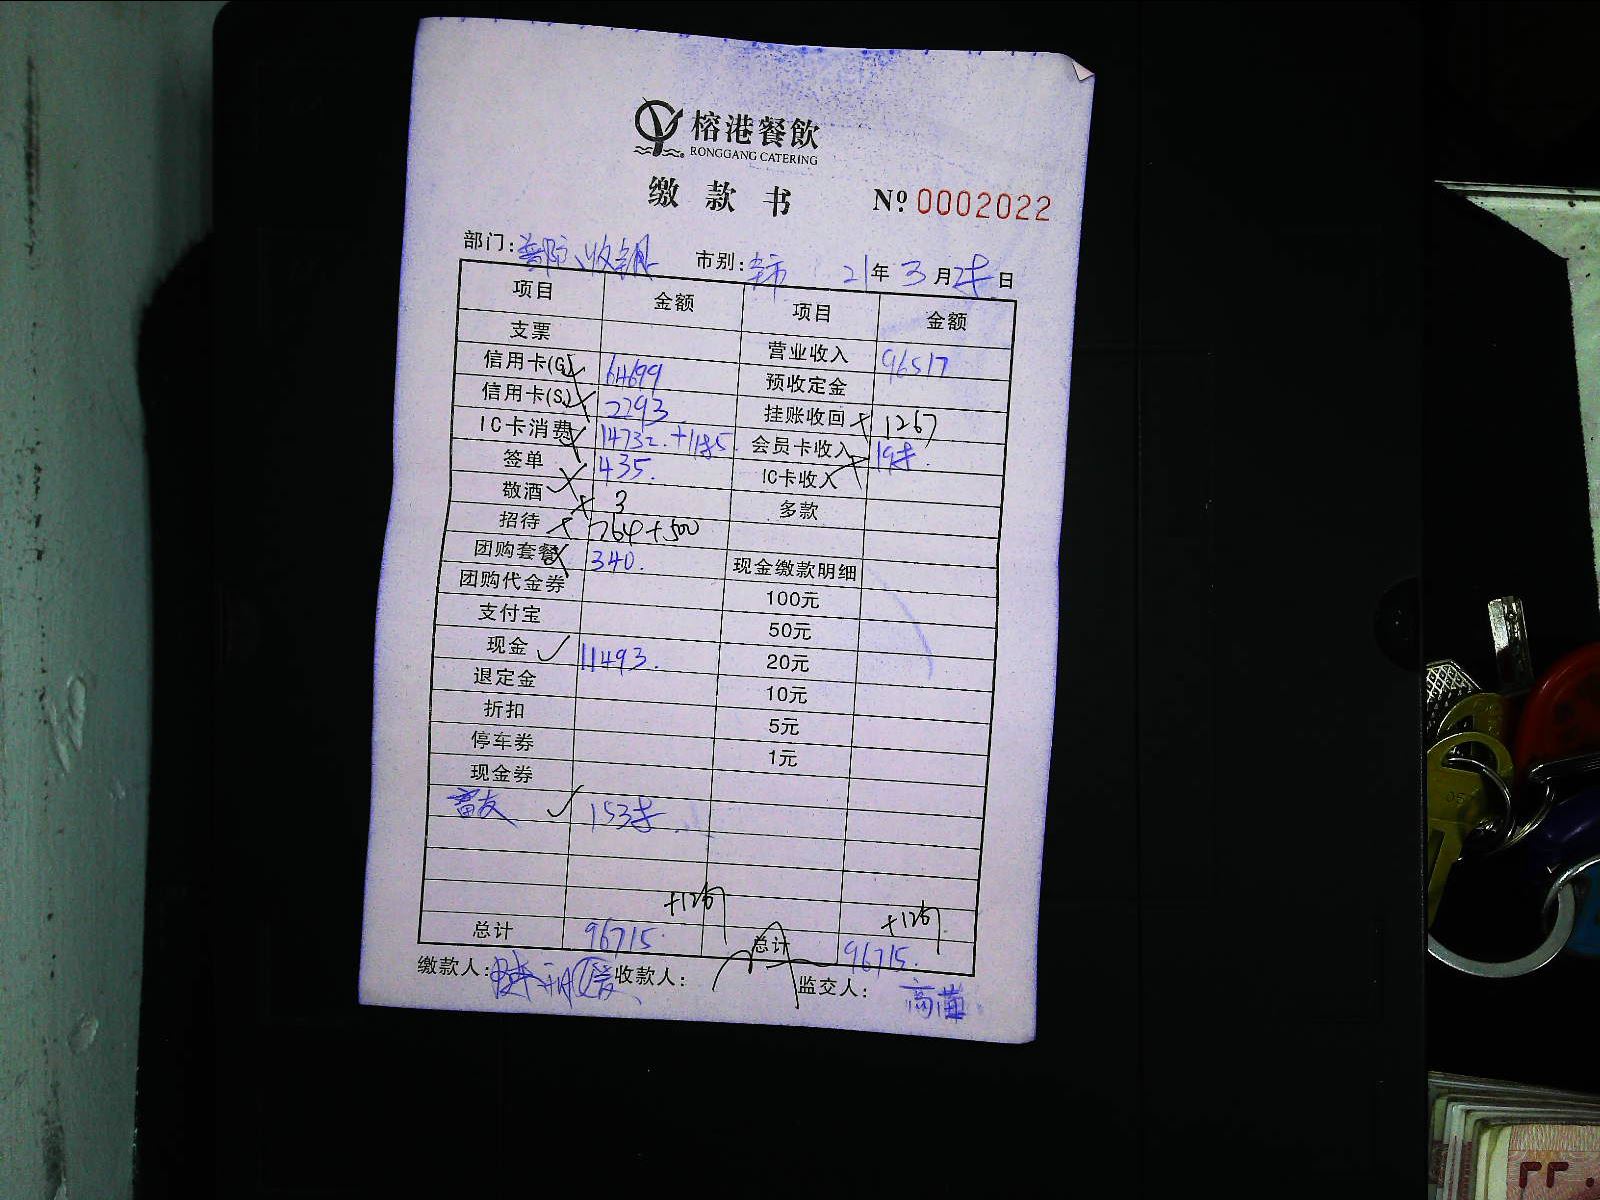 榕港餐飲
RONGGANG CATERING
缴款书 Nº 0002022
部门: 收银 市别: 市 21年3月 日
项目 金额 项目 金额
支票 营业收入 96517
信用卡(G) 64699 预收定金
信用卡(S) 2293 挂账收回 1267
IC卡消费 14732. 会员卡收入
签单 435. IC卡收入
敬酒 3 多款
招待 764+500
团购套餐 340. 现金缴款明细
团购代金券 100元
支付宝 50元
现金 11493. 20元
退定金 10元
折扣 5元
停车券 1元
现金券
+1267 +1267
总计 96715. 总计 96715.
缴款人: 收款人: 监交人: 高苗